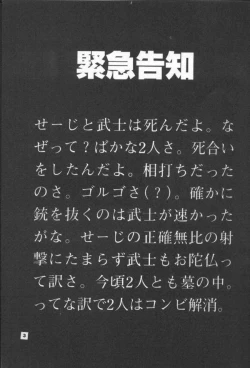 緊急告知
せーじと武士は死んだよ。な
ぜって？ばかな2人さ。死合い
をしたんだよ。相打ちだった
のさ。ゴルゴさ(?)。確かに
銃を抜くのは武士が速かった
がな。せーじの正確無比の射
撃にたまらず武士もお陀仏っ
て訳さ。今頃2人とも墓の中。
ってな訳で2人はコンビ解消。